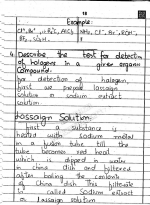 18
Example:
4. Describe the test for detection
of halogens in a given organic
Compound.
For detection of halogen,
first we prepare lassaign
Solution or sodium extract
solution
Lassaign Solution:
First a substance is
heated with sodium metal
in a fusion tube till the
tube becomes red heat
which is dipped in water
in china dish and filtered
after boiling the contents
of China dish this filterate
is called Sodium extract
or lassaign solution